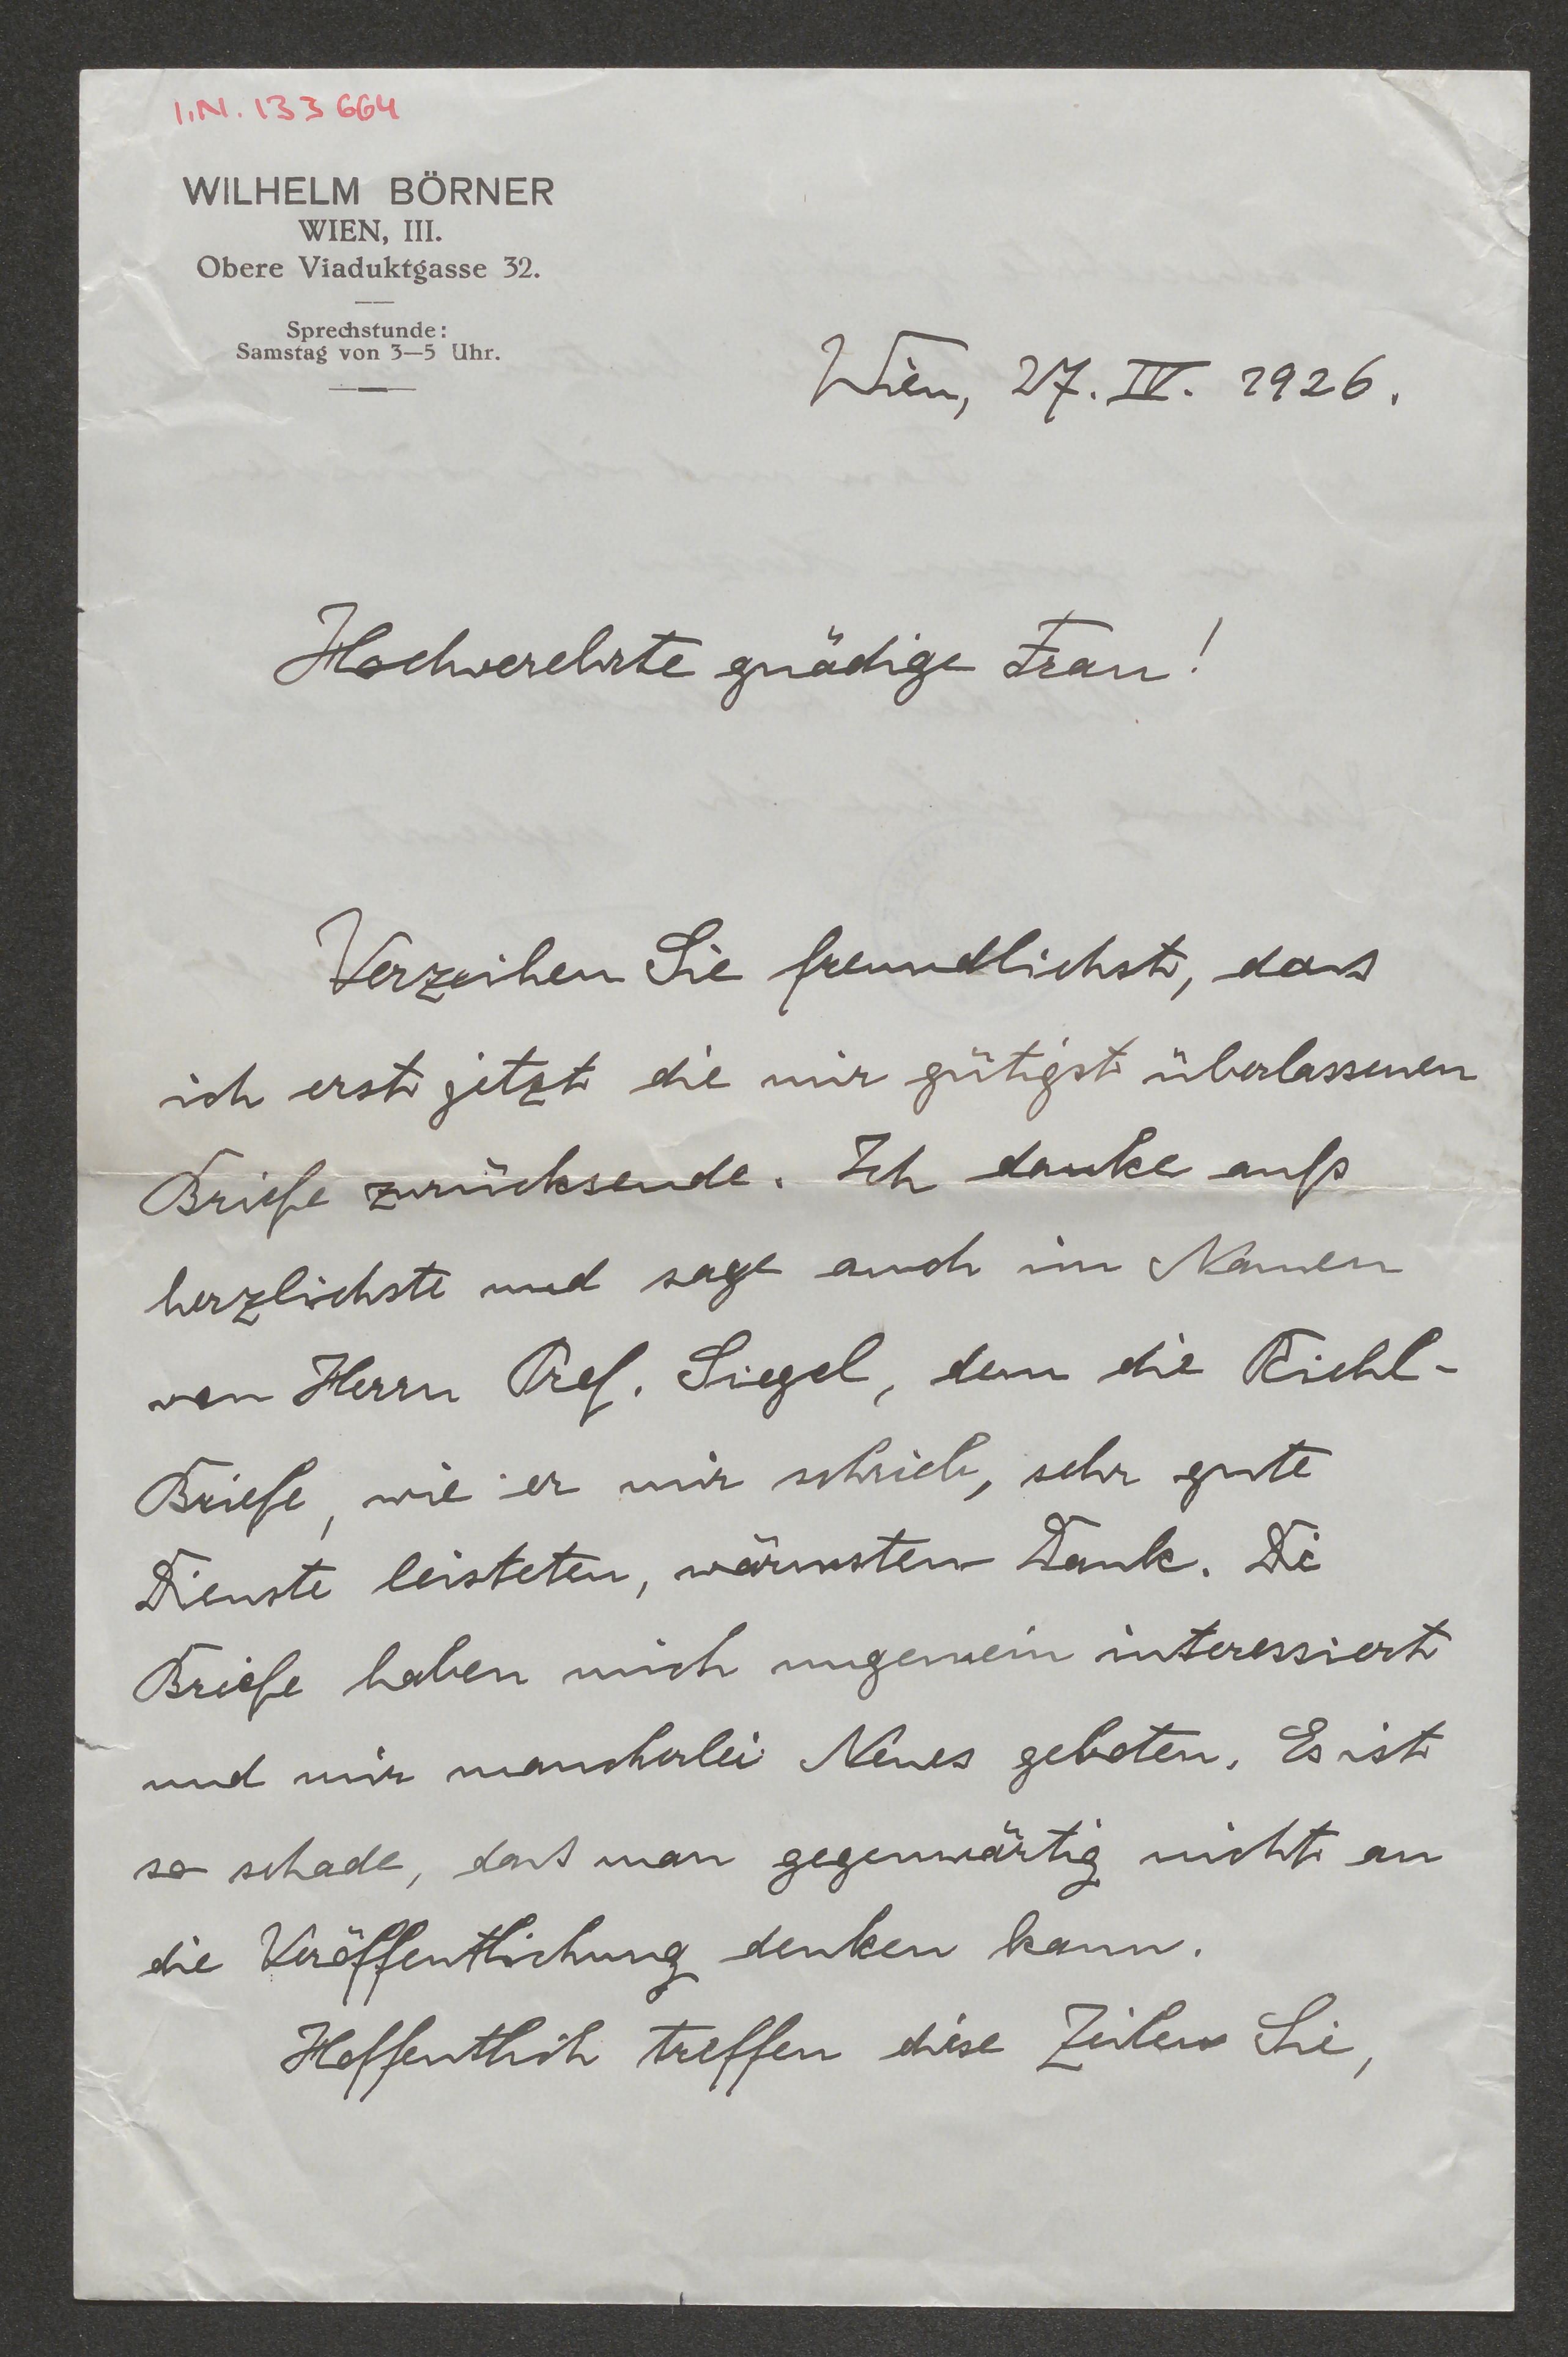 I.N. 133664
WILHELM BÖRNER
WIEN, III.
Obere Viaduktgasse 32.
Sprechstunde:
Samstag von 3—5 Uhr.
Wien, 27. IV. 1926.
Hochverehrte gnädige Frau!
Verzeihen Sie freundlichst, dass
ich erst jetzt die mir gütigst überlassenen
Briefe zurücksende. Ich danke aufs
herzlichste und sage auch im Namen
von Herrn Prof. Siegel, dem die Riehl-
Briefe, wie er mir schrieb, sehr gute
Dienste leisteten, wärmsten Dank. Die
Briefe haben mich ungemein interessiert
und mir mancherlei Neues geboten. Es ist
so schade, dass man gegenwärtig nicht an
die Veröffentlichung denken kann.
Hoffentlich treffen diese Zeilen Sie,